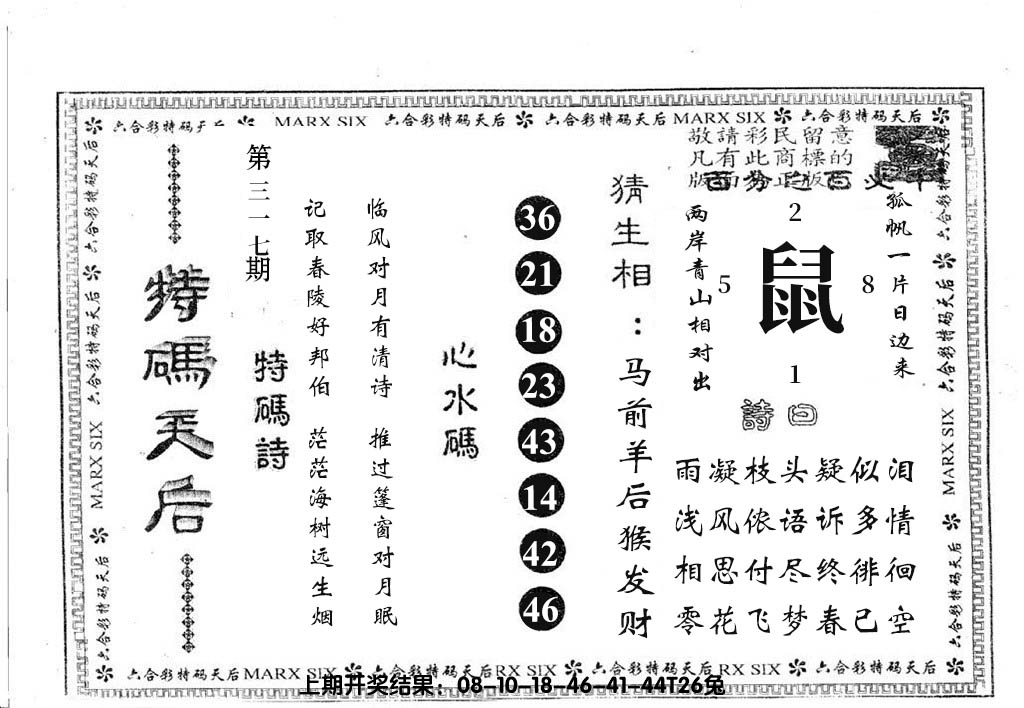 六合彩特码天 MARX SIX 六合彩特码天后 六合彩特码天后 MARX SIX 六合彩特码天后
敬請彩民留意
凡有此商標的
孤帆一片日边来
2
5 鼠 8
1
两岸青山相对出
詩曰
雨凝枝头疑似泪
浅风侬语诉多情
相思付尽终徘徊
零花飞梦春已空
猜生相：马前羊后猴发财
36
21
18
23
43
14
42
46
心水碼
临风对月有清诗 推过篷窗对月眠
记取春陵好邦伯 茫茫海树远生烟
特碼詩
第三一七期
特碼天后
六合彩特码天后 六合彩特码天后 MARX SIX 六合彩特码天后
六合彩特码天后 六合彩特码天后 MARX SIX 六合彩特码天后
六合彩特码天后 MARX SIX 六合彩特码天后 RX SIX 六合彩特码天后 RX SIX 六合彩特码天后
上期开奖结果：08-10-18-46-41-44T26兔